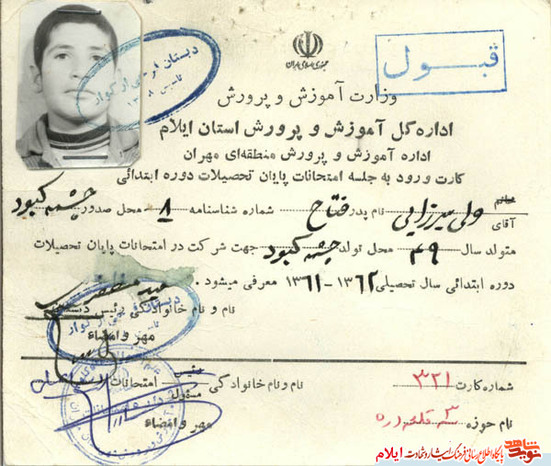 جمهوری اسلامی ایران
قبول
وزارت آموزش و پرورش
اداره کل آموزش و پرورش استان ایلام
اداره آموزش و پرورش منطقه‌ای مهران
کارت ورود به جلسه امتحانات پایان تحصیلات دوره ابتدائی
آقای ولی میرزایی نام پدر فتاح شماره شناسنامه ۸ محل صدور چشمه کبود
متولد سال ۴۹ محل تولد چشمه کبود جهت شرکت در امتحانات پایان تحصیلات
دوره ابتدائی سال تحصیلی ۱۳۶۲-۱۳۶۱ معرفی میشود.
نام و نام خانوادگی رئیس دبستان
مهر و امضاء
شماره کارت ۳۲۱
نام و نام خانوادگی مسئول امتحانات
نام حوزه
مهر و امضاء
نوید شاهد پایگاه اطلاع رسانی فرهنگ ایثار و شهادت ایلام